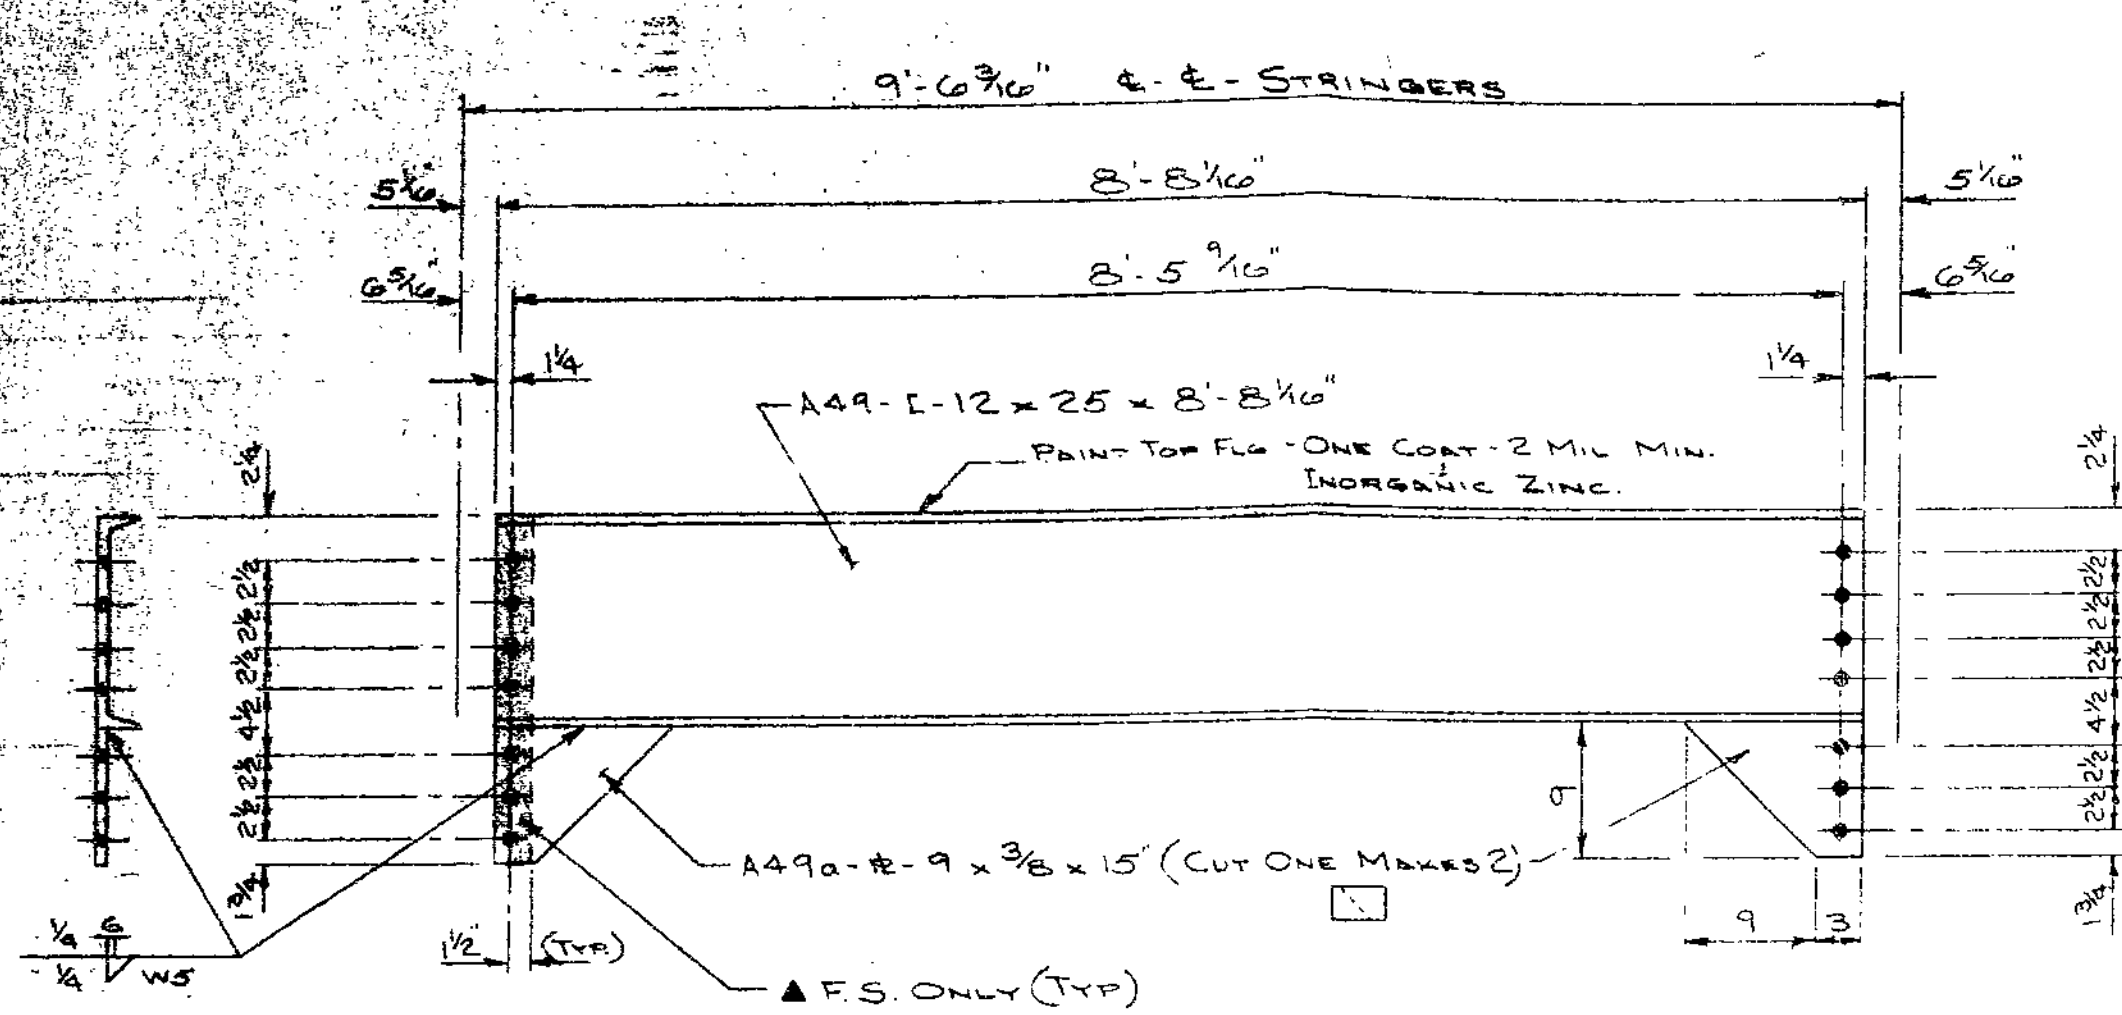 9'-6 3/16" ℄-℄-STRINGERS
5 1/16" 8'-8 1/16" 5 1/16"
6 5/16" 8'-5 9/16" 6 5/16"
1 1/4 1 1/4
A49-[-12 x 25 x 8'-8 1/16"
PAINT TOP FLG - ONE COAT - 2 MIL MIN.
INORGANIC ZINC.
2 1/4
2 1/2
2 1/2
2 1/2
4 1/2
2 1/2
2 1/2
1 3/4
2 1/4
2 1/2
2 1/2
2 1/2
4 1/2
2 1/2
2 1/2
1 3/4
9
A49a-℄-9 x 3/8 x 15" (CUT ONE MAKES 2)
9 3
1/4 6
1/4 W5
1 1/2" (TYP.)
▲ F.S. ONLY (TYP)